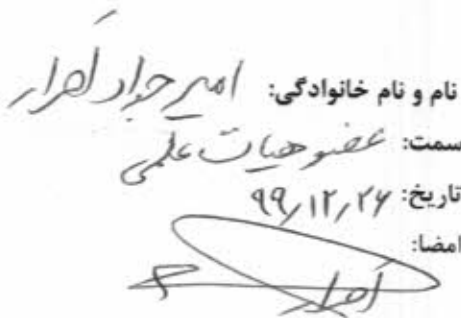 نام و نام خانوادگی: امیر جواد اهرار
سمت: عضو هیات علمی
تاریخ: ۹۹/۱۲/۲۶
امضا: